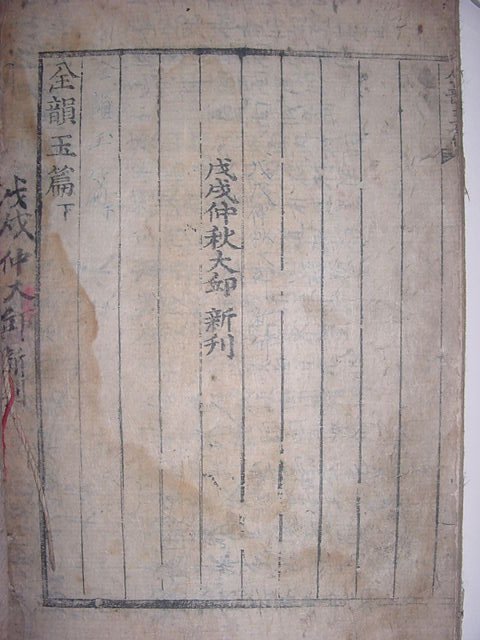 戊戌仲秋大邱新刊
全韻玉篇 下
戊戌仲大邱新刊